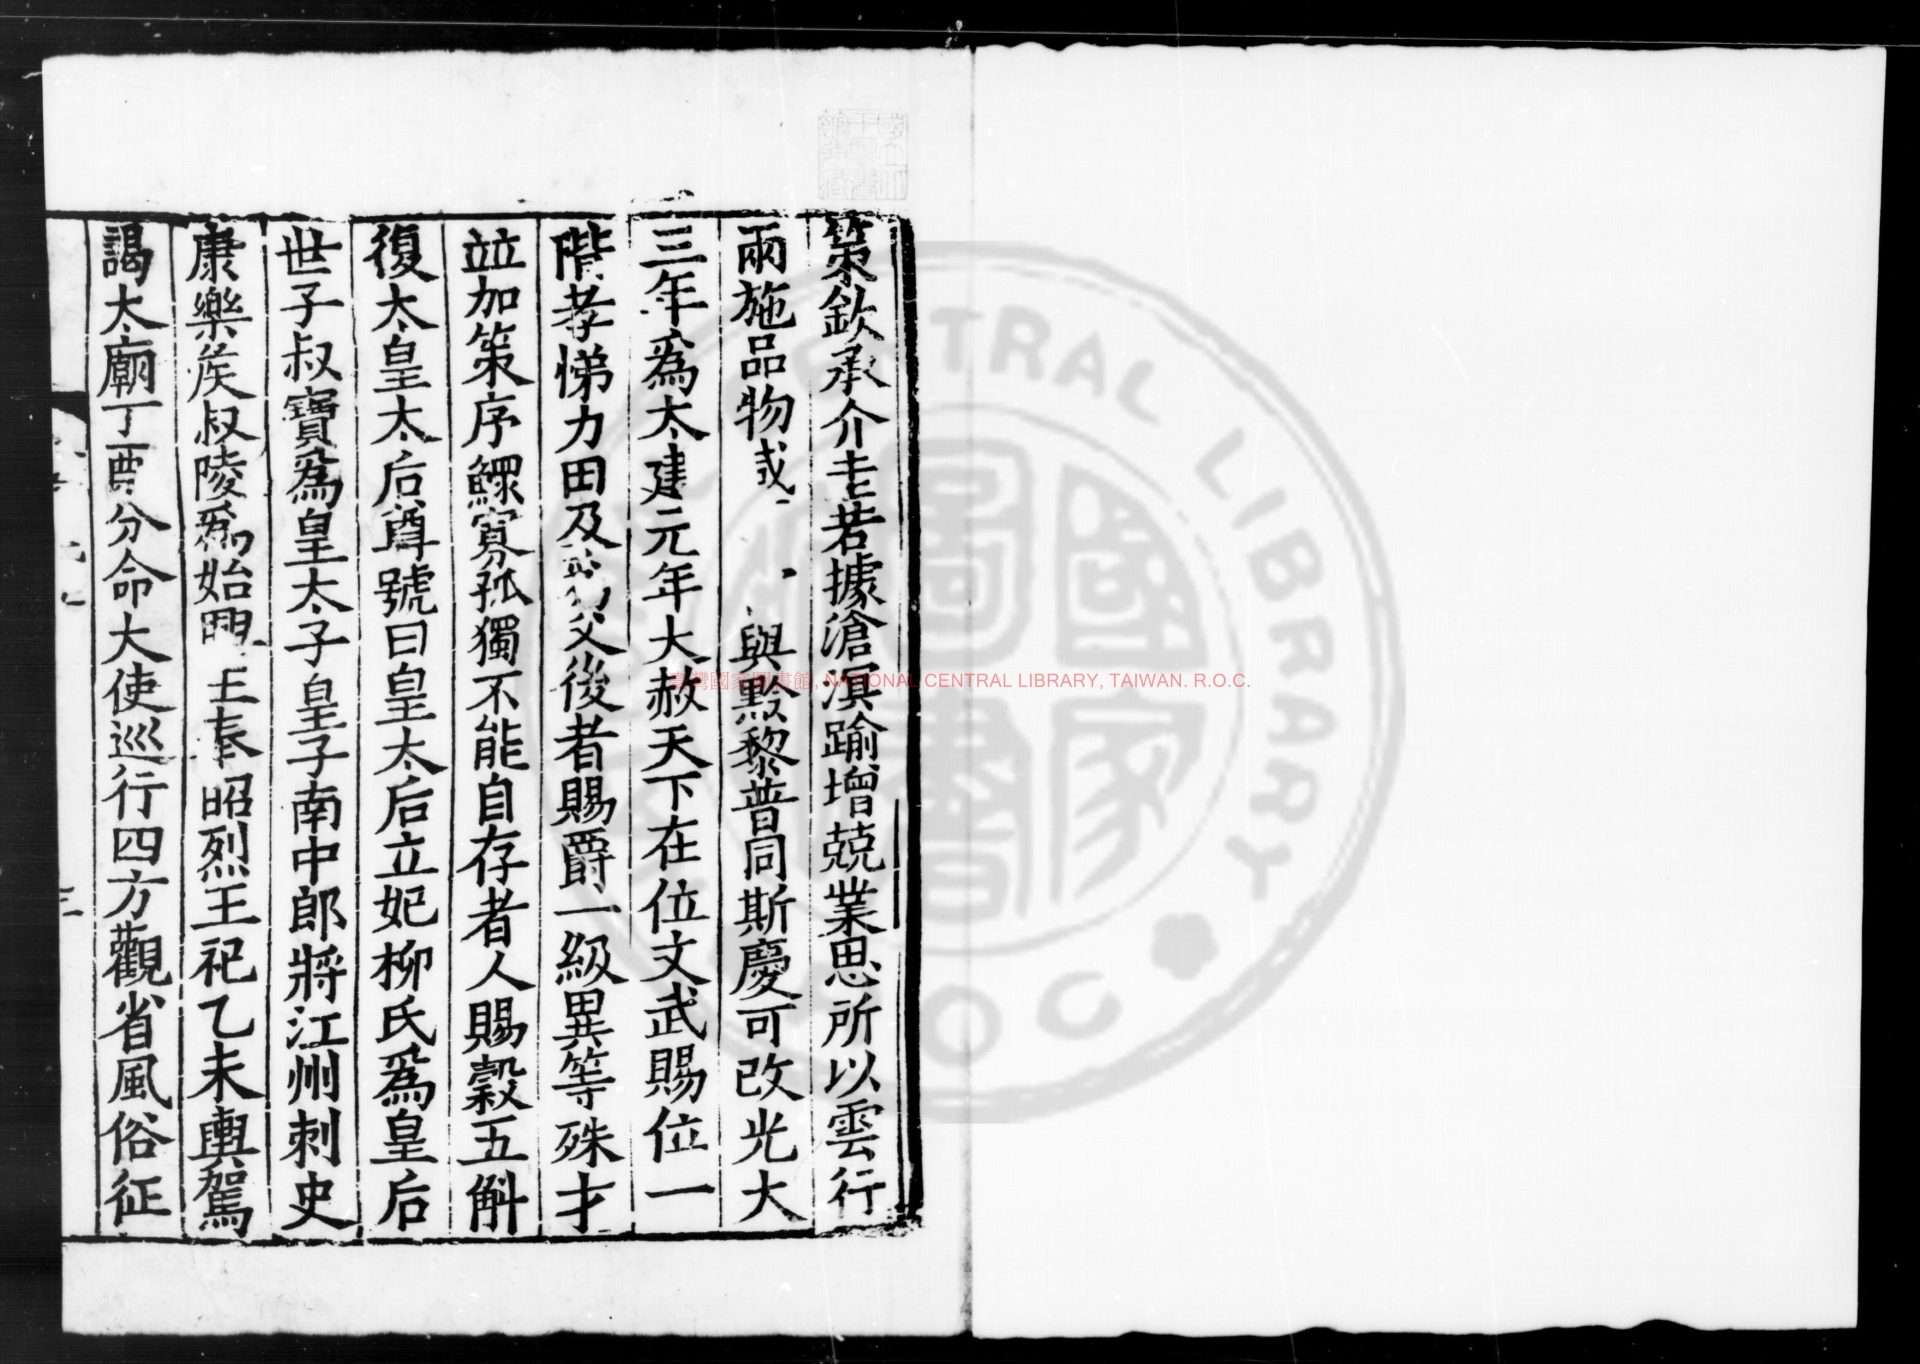 策欽承介圭若據滄溟踰增兢業思所以雲行
雨施品物咸與黔黎普同斯慶可改光大
三年為太建元年大赦天下在位文武賜位一
階孝悌力田及為父後者賜爵一級異等殊才
竝加策序鰥寡孤獨不能自存者人賜穀五斛
復太皇太后尊號曰皇太后立妃柳氏為皇后
世子叔寶為皇太子皇子南中郎將江州刺史
康樂侯叔陵為始興王奉昭烈王祀乙未輿駕
謁太廟丁酉分命大使巡行四方觀省風俗征
三
臺灣國家圖書館, NATIONAL CENTRAL LIBRARY, TAIWAN. R.O.C.